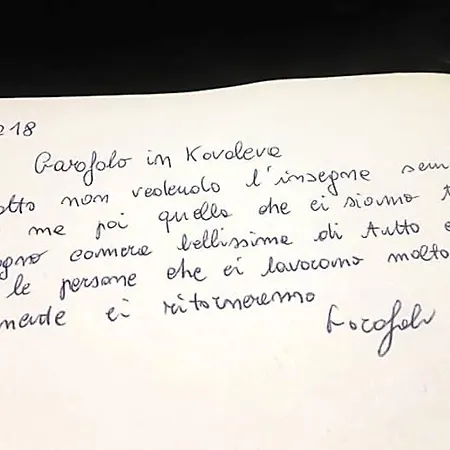 218
Garofolo in Kovaleva
otto non vedendo l'insegne sem
me poi quello che ci siamo t
ogno camera bellissima di tutto e
le persone che ci lavorano molto
mente ci ritorneremo
Garofolo